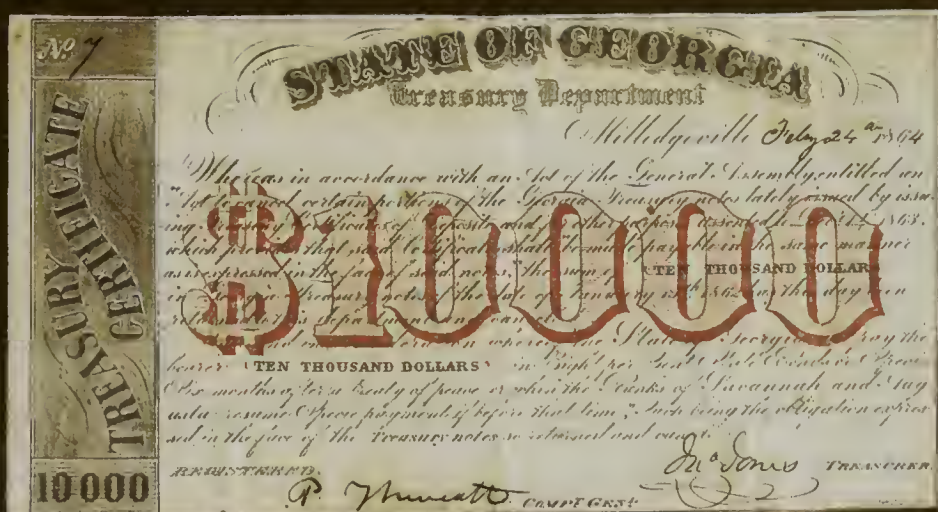 No 7
STATE OF GEORGIA
Treasury Department
Milledgeville Feby 24 1864
Whereas in accordance with an Act of the General Assembly entitled an
"Act to cancel certain portions of the Georgia Treasury notes lately issued by issu-
ing Treasury Certificates of Deposite and for other purposes assented to 1863.
which provides that said Certificates shall be made payable in the same manner
as is expressed in the face of said notes, the sum of TEN THOUSAND DOLLARS
in Georgia Treasury notes of the date of January 15th 1862 has this day been
returned to this department and canceled
And in consideration whereof the State of Georgia will pay the
bearer TEN THOUSAND DOLLARS in Eight per Cent State Bonds or Specie
Six months after a Treaty of peace or when the Banks of Savannah and Aug
usta resume Specie payments if before that time", Such being the obligation expres
sed in the face of the Treasury notes so returned and
$10000
REGISTERED.
Jno Jones TREASURER.
P. Thweatt COMPT GENL
TREASURY
CERTIFICATE
10000